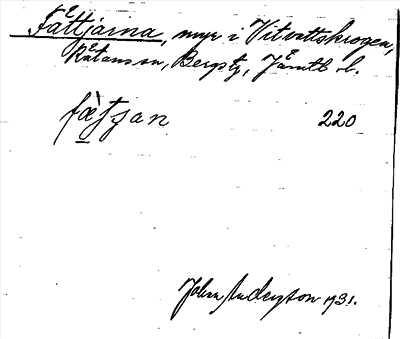 Fåttjärna, myr i Vitvattskrogen,
Rätans sn, Bergs tg, Jämtl. l.
fæ̀tjan 220
Johan Anderson 1931.